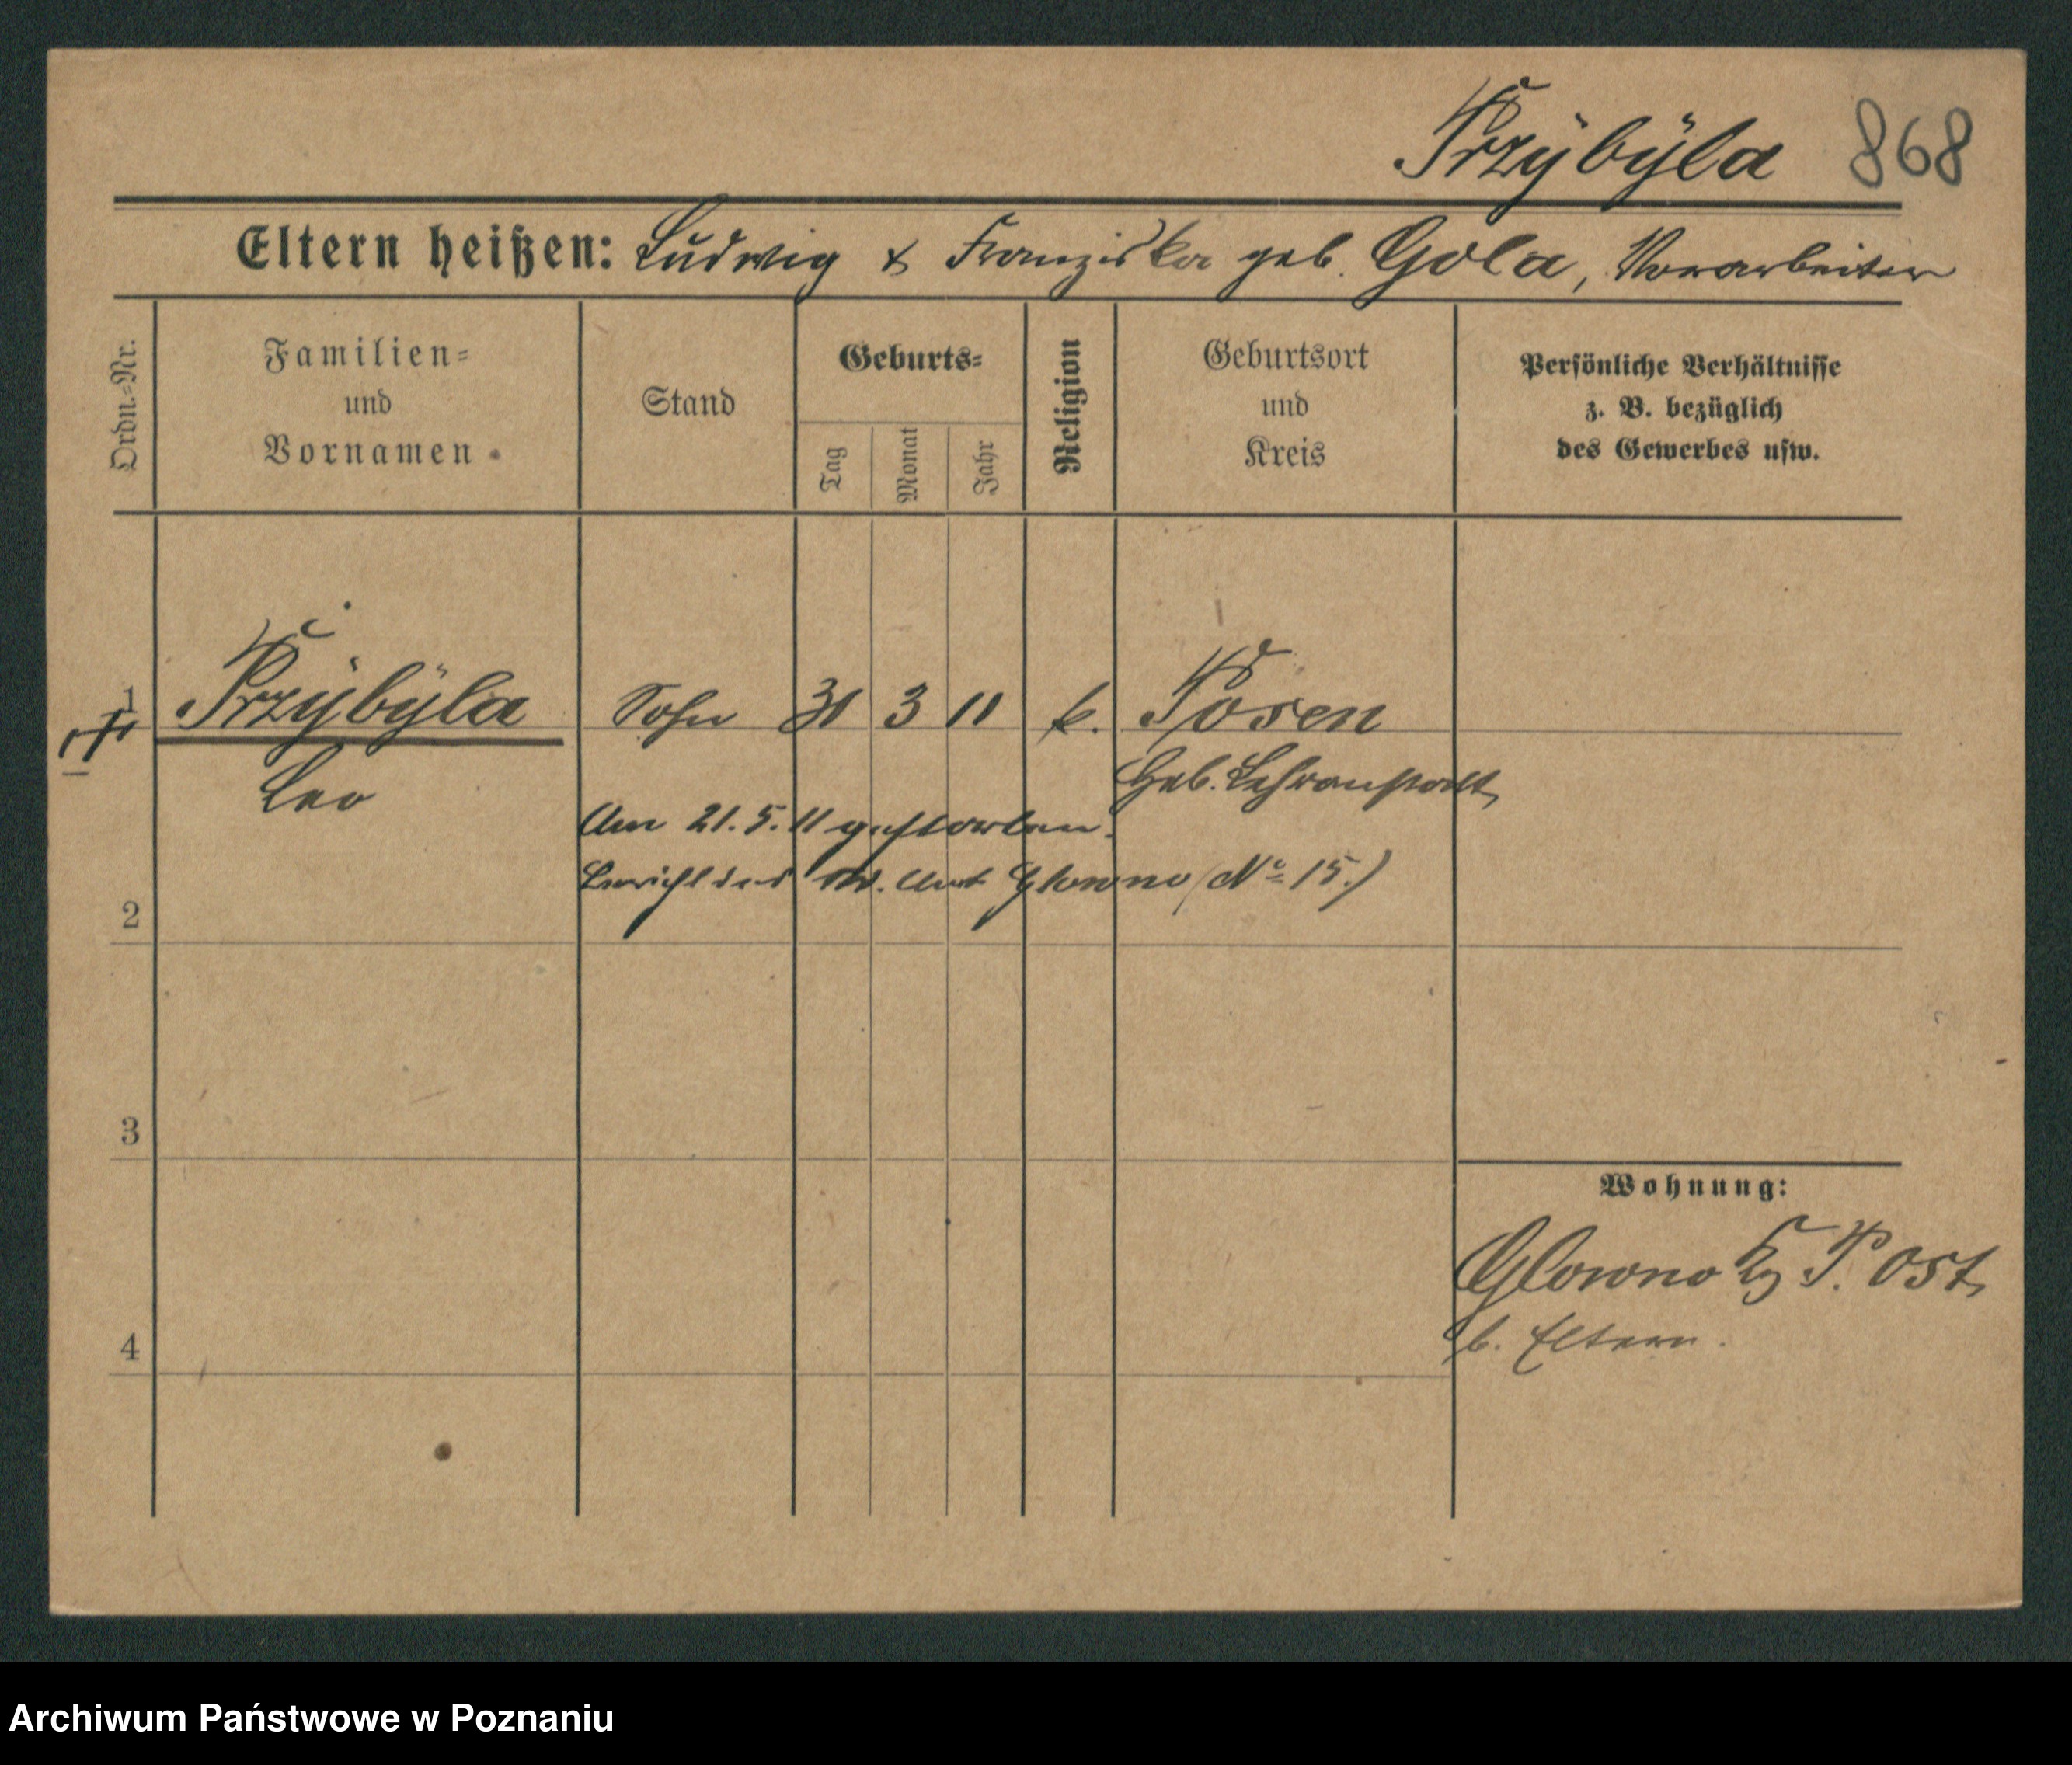 Przÿbÿla 868
Eltern heißen: Ludwig & Franziska geb. Gola, Vorarbeiter
Ordn.-Nr.
Familien-
und
Vornamen
Stand
Geburts-
Tag
Monat
Jahr
Religion
Geburtsort
und
Kreis
Persönliche Verhältnisse
z. B. bezüglich
des Gewerbes usw.
1 Przÿbÿla Sohn 31 3 11 k. Posen
Leo
Geb. Lehranstalt
Am 21. 5. 11 gestorben.
Bericht des Amt Glowno (No 15.)
2
3
Wohnung:
Glowno P. Ost
b. Eltern.
4
Archiwum Państwowe w Poznaniu